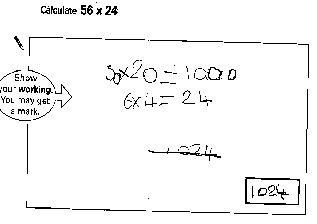 Calculate 56 x 24
Show
your working.
You may get
a mark.
50x20=1000
6x4=24
1024
1024